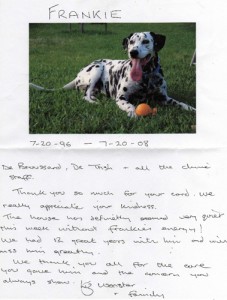 FRANKIE
7-20-96 — 7-20-08
Dr Broussard, Dr Tish + all the clinic
staff.
Thank you so much for your card. We
really appreciate your kindness.
The house has definitely seemed very quiet
this week without Frankies energy!
We had 12 great years with him and will
miss him greatly.
We thank you all for the care
you gave him and the concern you
always show.
+ family